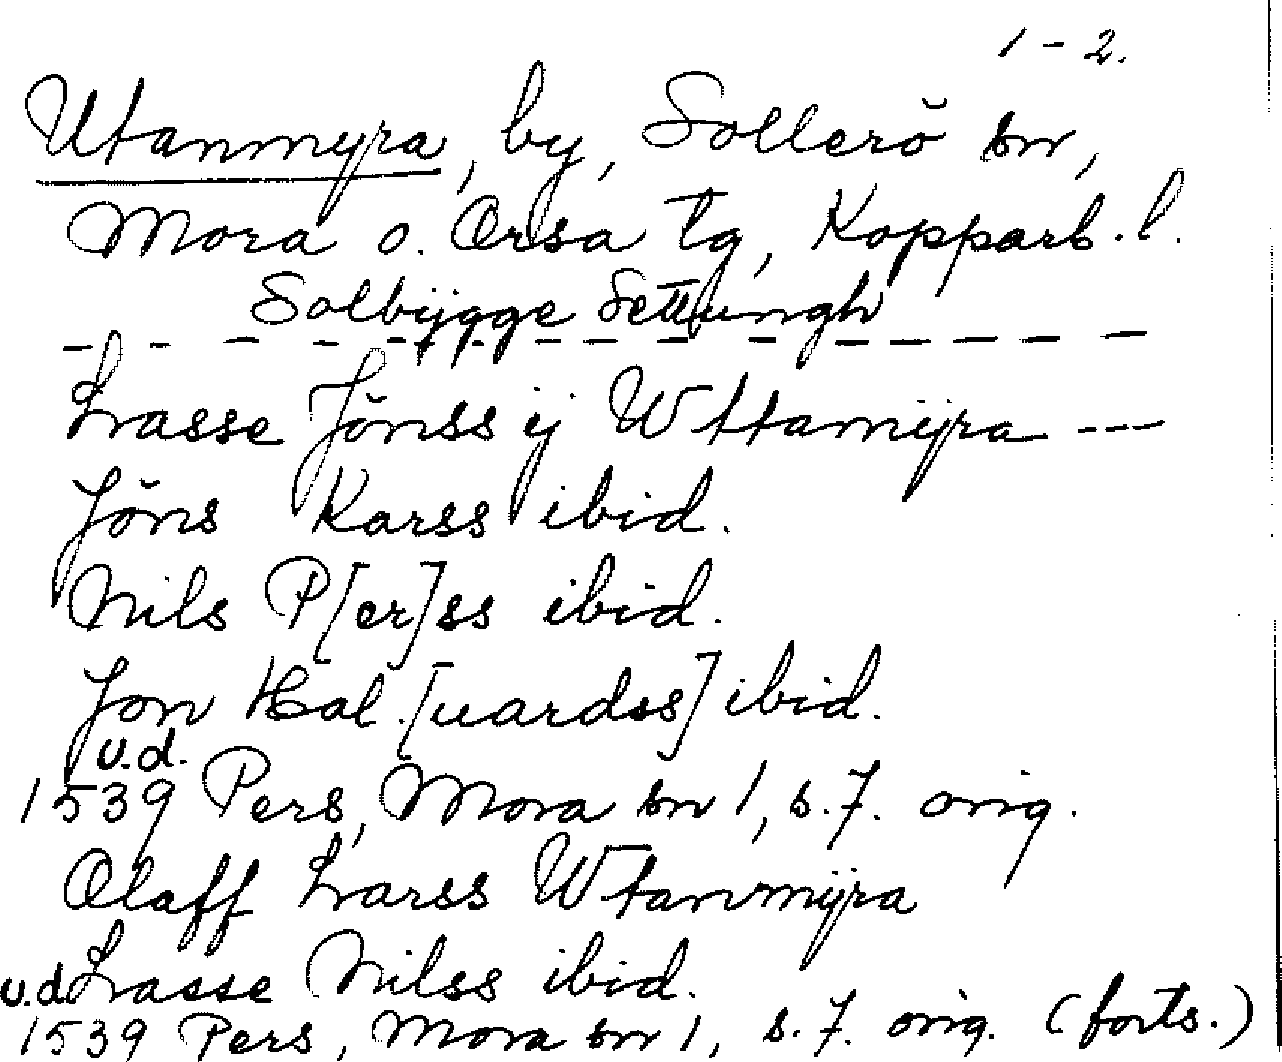 1-2.
Utanmyra, by, Sollerö sn,
Mora o. Orsa tg, Kopparb. l.
Solbÿgge Settungh
Lasse Jönss ij Wttamÿra ---
Jöns Karss ibid.
Nils P[er]ss ibid.
Jon Hal.[uardss] ibid.
u.d.
1539 Pers, Mora sn 1, s.7. orig.
Olaff Larss Wtanmÿra
u.d. Lasse Nilss ibid.
1539 Pers, Mora sn 1, s.7. orig. (forts.)